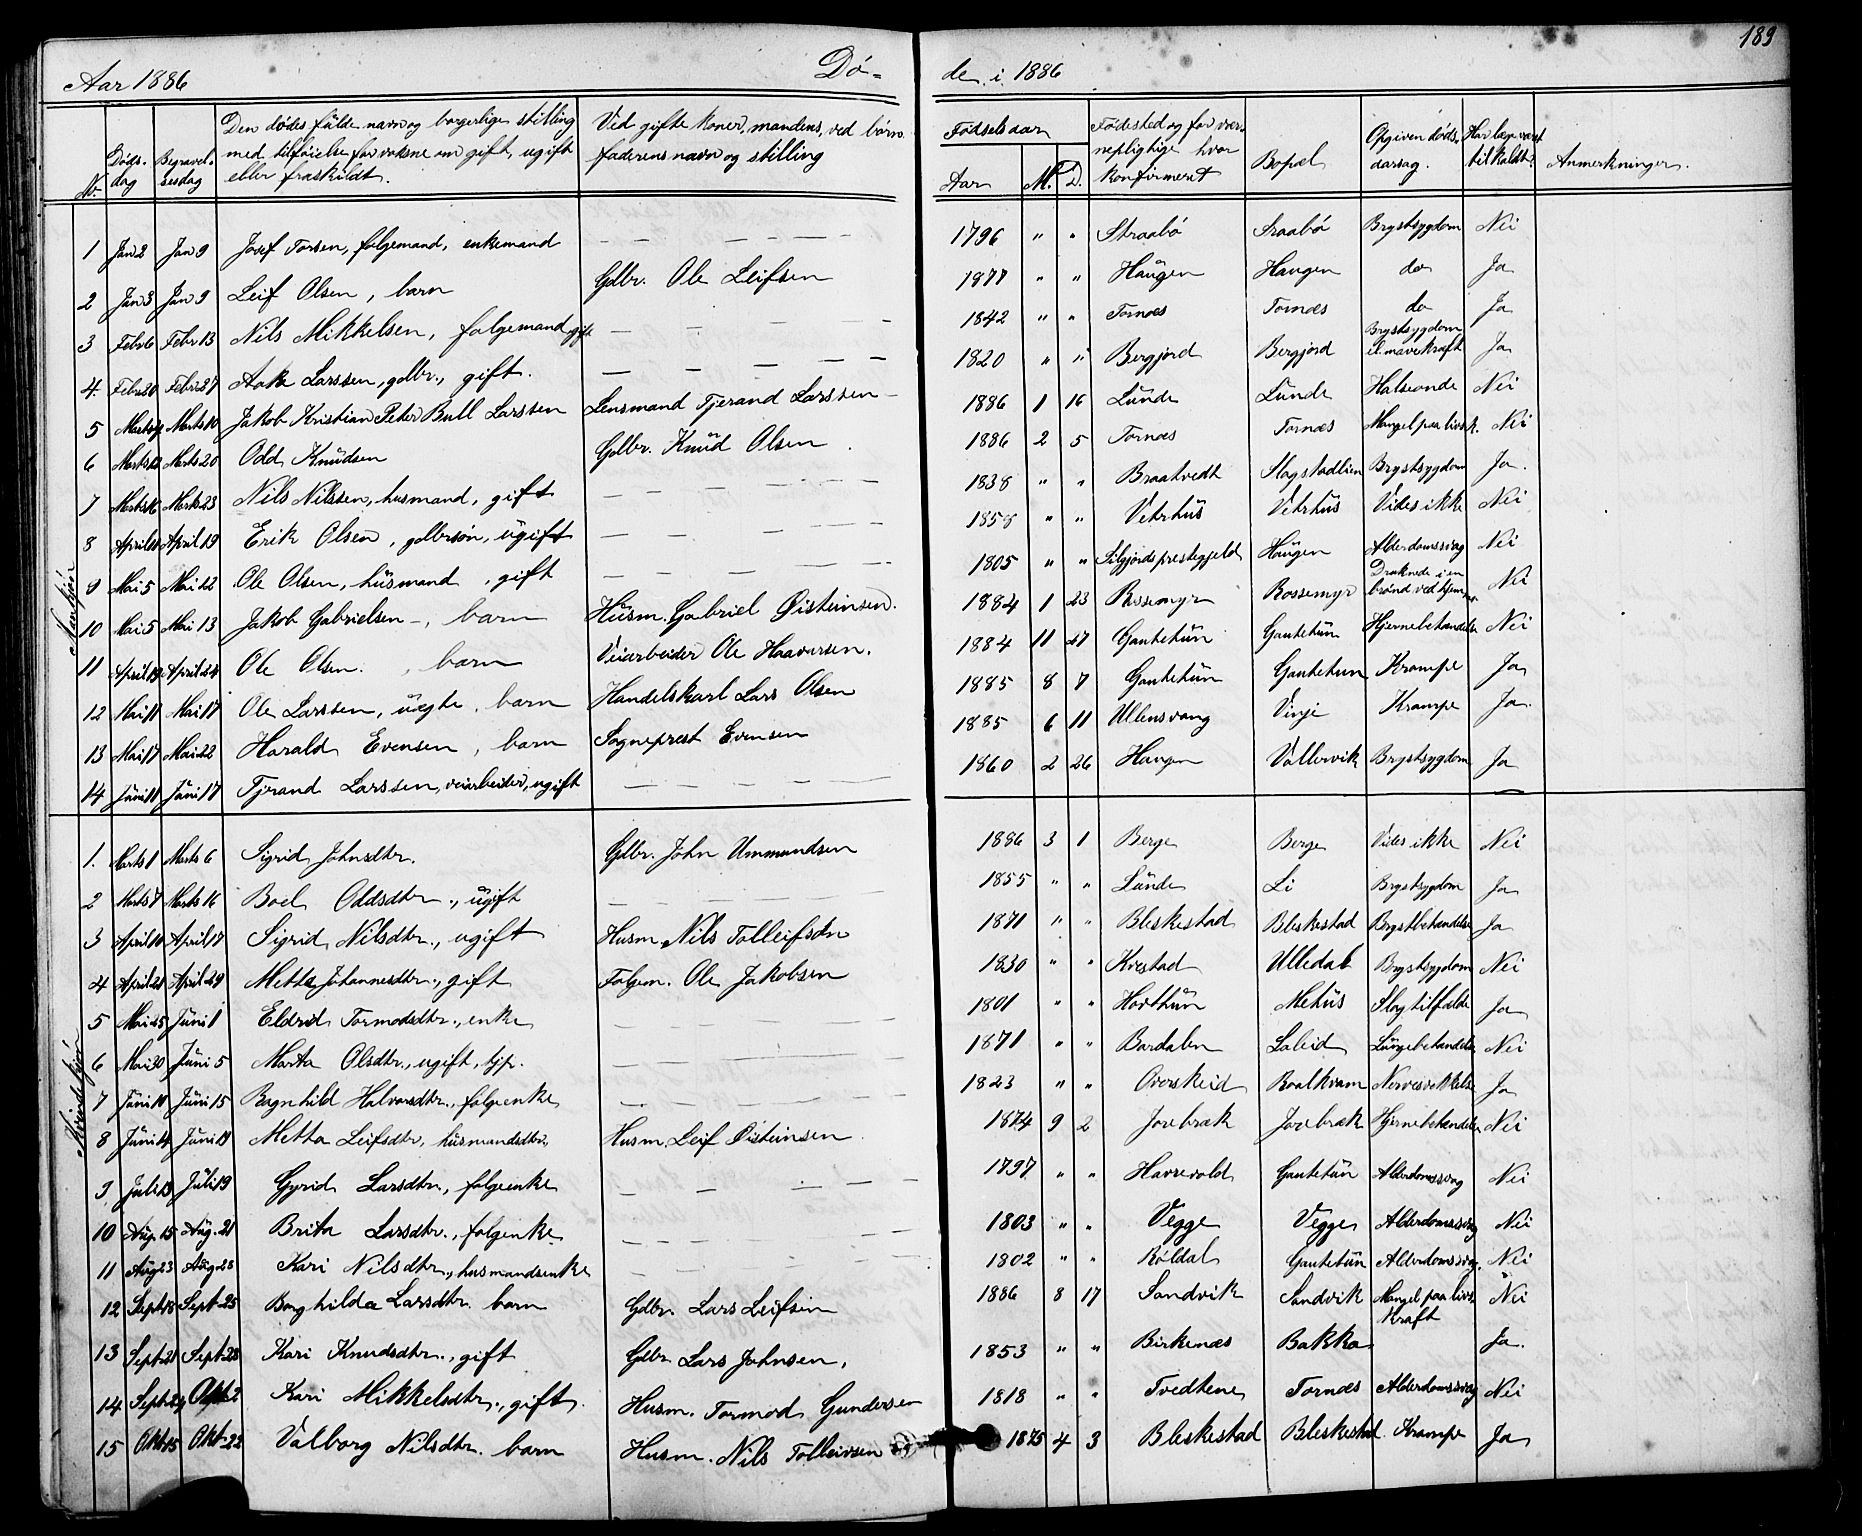 189
Aar 1886 Dö- de i 1886
No. Döds-dag Begravel-sesdag Den dödes fulde navn og borgerlige stilling med tilföielse for voksne om gift, ugift eller fraskildt. Ved gifte koner, mandens, ved börn faderens navn og stilling Födselsaar Aar M. D. Födested og for vær-nepligtige hvor konfirmeret Bopæl Opgiven döds-aarsag. Har læge været tilkaldt? Anmerkninger.
Mankjön
1 Jan 2 Jan 9 Josef Torsen, folgemand, enkemand — — — — — 1796 " " Straabö Straabö Brystsygdom Nei
2 Jan 3 Jan 9 Leif Olsen, barn Gdbr. Ole Leifsen 1877 " " Haugen Haugen do Ja
3 Febr 6 Febr 13 Nils Mikkelsen, folgemand gift — — — — — 1842 " " Tornæs Tornæs do Ja
4. Febr 20 Febr 27 Aake Larssen, gdbr., gift. — — — — 1820 " " Bergjord Bergjord Brystsygdom el. mavekræft Ja
5 Marts Marts 10 Jakob Kristian Peter Bull Larssen Lensmand Tjerand Larssen 1886 1 16 Lunde Lunde Halseonde Nei
6 Marts 12 Marts 20 Odd Knudsen Gdbr. Knud Olsen 1886 2 5 Tornæs Tornæs Mangel paa livsk. Nei
7 Marts 16 Marts 23 Nils Nilssen, husmand, gift — — — — — 1838 " " Braatvedt Slagstadlien Brystsygdom Ja.
8 April April 19 Erik Olsen, gdbrsön, ugift — — — — — 1858 " " Vetrhus Vetrhus Vides ikke Nei
9 Mai 5 Mai 12 Ole Olsen, husmand, gift — — — — — 1805 " " Silgjords prestegjeld Haugen Alderdomssvag Nei
10 Mai 5 Mai 13 Jakob Gabrielsen —, barn Husm. Gabriel Öisteinsen. 1884 1 23 Rossemyr Rossemyr Druknede i en brönd ved hjem. Nei
11 April 19 April 24 Ole Olsen, barn Veiarbeider Ole Haavarsen. 1884 11 27 Gautetun Gautetun Hjernebetændelse Nei
12 Mai 11 Mai 17 Ole Larssen, uægte, barn Handelskarl Lars Olsen 1885 8 7 Gautetun Gautetun Krampe Ja
13 Mai 17 Mai 22 Harald Evensen, barn Sogneprest Evensen 1885 6 11 Ullensvang Vinje Krampe Ja.
14 Juni 11 Juni 17 Tjerand Larssen, veiarbeider, ugift — — — — 1860 2 26 Haugen Vallervik Brystsygdom Ja
Kvindekjön
1. Marts 1 Marts 6 Sigrid Johnsdtr. Gdbr. John Ummundsen 1886 3 1 Berge Berge Vides ikke Nei
2 Marts 7 Marts 16 Boel Oddsdtr., ugift — — — — — 1855 " " Lunde Li Brystsygdom Ja
3 April 10 April 17 Sigrid Nilsdtr., ugift Husm. Nils Tolleifsön 1871 " " Bleskestad Bleskestad Brystbetændelse Ja
4 April 21 April 29 Metta Johannesdtr., gift Folgem. Ole Jakobsen 1830 " " Kvestad Ulledal Brystsygdom Nei
5 Mai 25 Juni 1 Eldrid Tormodsdtr., enke — — — — — 1801 " " Havthun Mehus Slagtilfælde Ja
6 Mai 30 Juni 5 Marta Olsdtr., ugift, tjp. — — — — 1871 " " Bardalen Laleid Lungebetændelse Nei
7 Juni 10 Juni 15 Ragnhild Halvorsdtr., folgeenke — — — — — 1823 " " Overskeid Baalkvam Ja
8 Juni 14 Juni 19 Metta Leifsdtr, husmandsdtr. Husm. Leif Öisteinsen 1874 9 2 Jorebræk Jorebræk Hjernebetændelse Nei
9 Juli 13 Juli 19 Gyrid Larsdtr., folgeenke — — — — 1797 " " Havrevold Gautetun Alderdomssvag Nei
10 Aug. 15 Aug. 21 Brita Larsdtr., folgenke — — — — — 1803 " " Vegge Vegge Alderdomssvag Nei
11 Aug 23 Aug. 28 Kari Nilsdtr., husmandsenke — — — — 1802 " " Röldal Gautetun Alderdomssvag. Nei
12 Sept 18 Sept. 25 Borghilda Larsdtr. barn Gdbr. Lars Leifsen 1886 8 17 Sandvik Sandvik Mangel paa livs-kraft Nei
13 Sept. 21 Sept. 28 Kari Knudsdtr., gift Gdbr Lars Johnsen, 1853 " " Birkenæs Bakka Ja.
14 Sept. 24 Okt 2 Kari Mikkelsdtr., gift. Husm. Tormod Gundersen 1818 " " Tvedtene Tornæs Alderdomssvag Nei
15 Okt 15 Okt. 22 Valborg Nilsdtr. barn Husm. Nils Tolleivsen 1875 4 3 Bleskestad Bleskestad. Krampe Ja